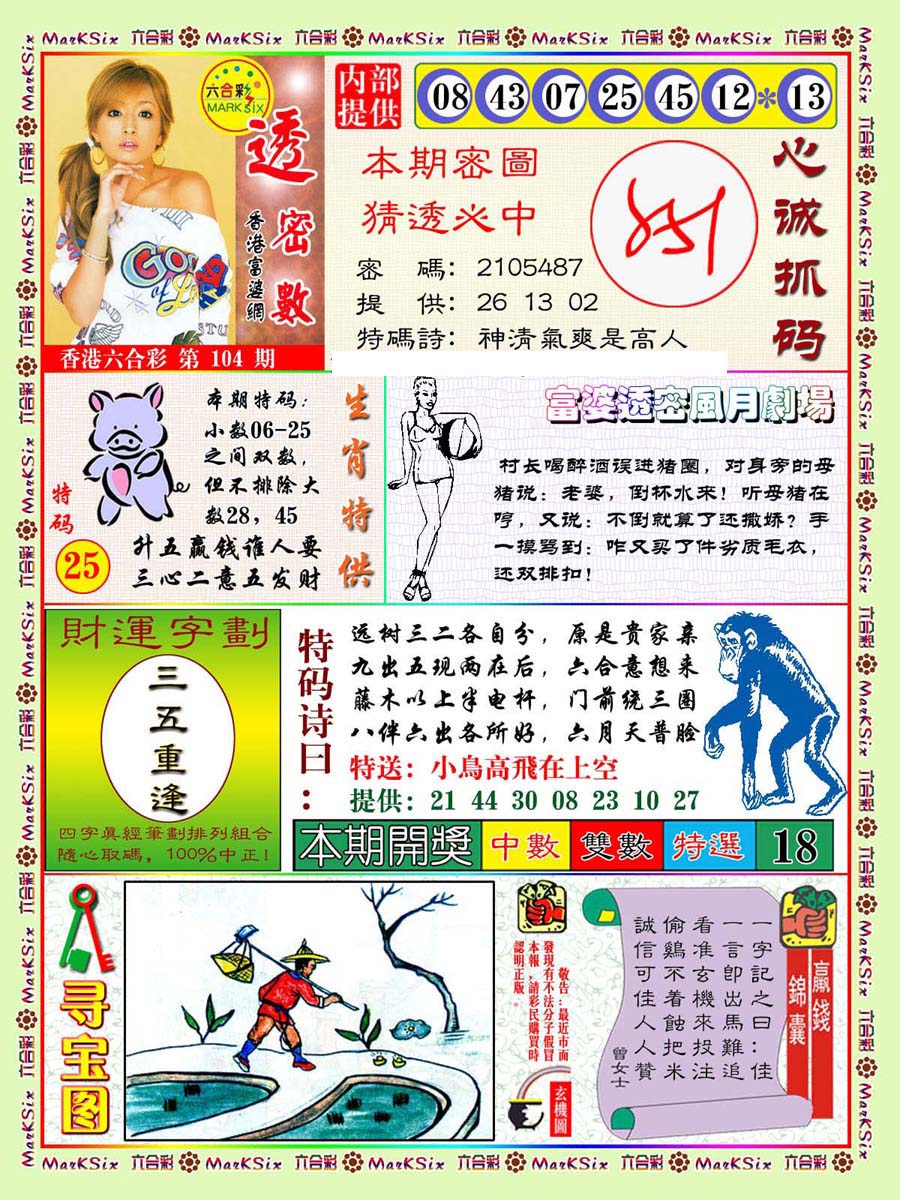 MarKSix 六合彩 MarKSix 六合彩 MarKSix 六合彩 MarKSix 六合彩 MarKSix 六合彩
六合彩
MARK SIX
透密數
香港富婆網
香港六合彩 第 104 期
内部
提供
08 43 07 25 45 12 * 13
本期密圖
猜透必中
密 碼: 2105487
提 供: 26 13 02
特碼詩: 神清氣爽是高人
心诚抓码
本期特码:
小数06-25
之间双数,
但不排除大
数28, 45
升五赢钱谁人要
三心二意五发财
特码
25
生肖特供
富婆透密風月劇場
村长喝醉酒误进猪圈, 对身旁的母
猪说: 老婆, 倒杯水来! 听母猪在
哼, 又说: 不倒就算了还撒娇? 手
一摸骂到: 咋又买了件劣质毛衣,
还双排扣!
財運字劃
三五重逢
四字真經筆劃排列組合
隨心取碼, 100%中正!
特码诗曰:
远树三二各自分, 原是贵家亲
九出五现两在后, 六合意想来
藤木以上半电杆, 门前统三圈
八伴六出各所好, 六月天普脸
特送: 小鳥高飛在上空
提供: 21 44 30 08 23 10 27
本期開獎 中數 雙數 特選 18
寻宝图
敬告:最近市面
發現有不法分子假冒
本報,請彩民購買時
認明正版。
玄機圖
贏錢
錦囊
一字記之曰:佳
一言即出馬難追
看准玄機來投注
偷鷄不着蝕把米
誠信可佳人人贊
曾女士
MarKSix 六合彩 MarKSix 六合彩 MarKSix 六合彩 MarKSix 六合彩 MarKSix 六合彩